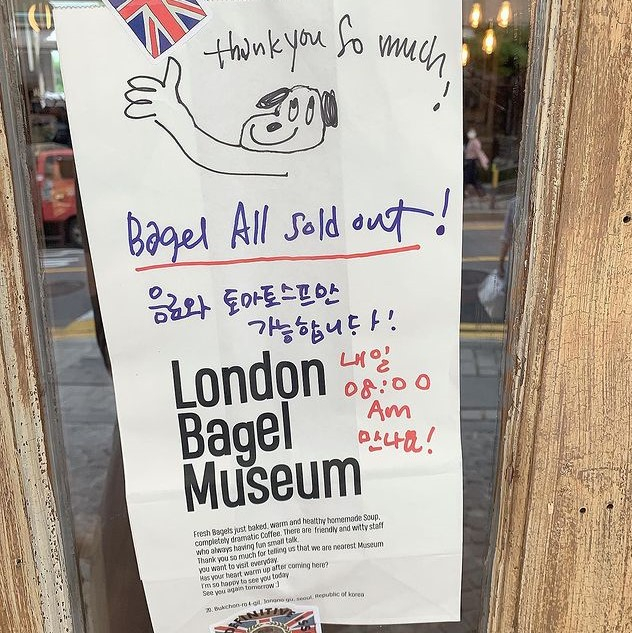 Thank you so much!
Bagel All Sold out!
음료와 토마토스프만
가능합니다!
London
Bagel
Museum
내일
08:00
Am
만나요!
Fresh Bagels just baked, warm and healthy homemade Soup,
completely dramatic Coffee. There are friendly and witty staff
who always having fun small talk.
Thank you so much for telling us that we are nearest Museum
you want to visit everyday.
Has your heart warm up after coming here?
I'm so happy to see you today
See you again tomorrow :)
20, Bukchon-ro 4-gil, Jongno-gu, seoul, Republic of korea